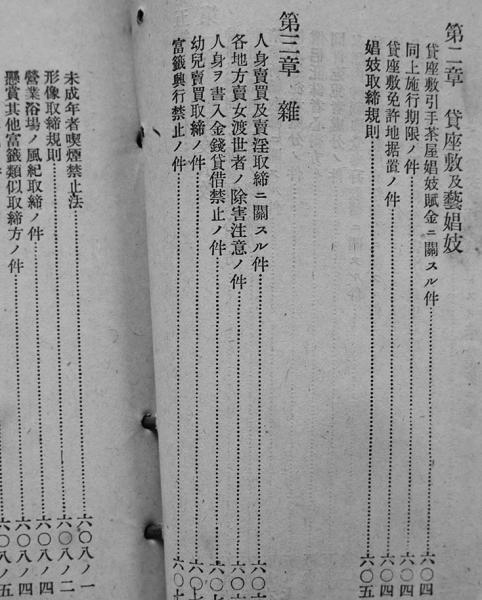 第二章 貸座敷及藝娼妓
貸座敷引手茶屋娼妓賦金ニ關スル件 六〇四
同上施行期限ノ件 六〇四
貸座敷免許地据置ノ件 六〇四
娼妓取締規則 六〇五
第三章 雜
人身賣買及賣淫取締ニ關スル件 六〇
各地方賣女渡世者ノ除害注意ノ件 六〇
人身ヲ書入金錢貸借禁止ノ件 六〇
幼兒賣買取締ノ件 六〇
富籤興行禁止ノ件 六〇七
未成年者喫煙禁止法 六〇八ノ一
形像取締規則 六〇八ノ二
營業浴場ノ風紀取締ノ件 六〇八ノ四
懸賞其他富籤類似取締方ノ件 六〇八ノ四
六〇八ノ五